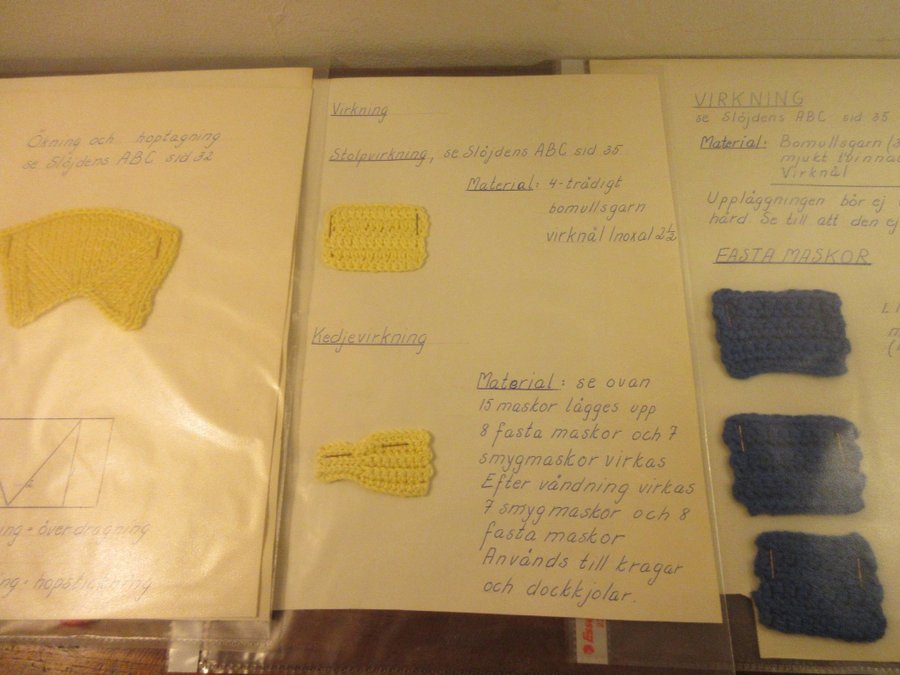 Ökning och hoptagning
se Slöjdens ABC sid 32
överdragning
hopstickning
Virkning
Stolpvirkning, se Slöjdens ABC sid 35
Material: 4-trådigt
bomullsgarn
virknål Inoxal 2 1/2
Kedjevirkning
Material: se ovan
15 maskor lägges upp
8 fasta maskor och 7
smygmaskor virkas
Efter vändning virkas
7 smygmaskor och 8
fasta maskor
Används till kragar
och dockkjolar.
VIRKNING
se Slöjdens ABC sid 35
Material: Bomullsgarn
mjukt
Virknål
Uppläggningen bör ej
hård Se till att den ej
FASTA MASKOR